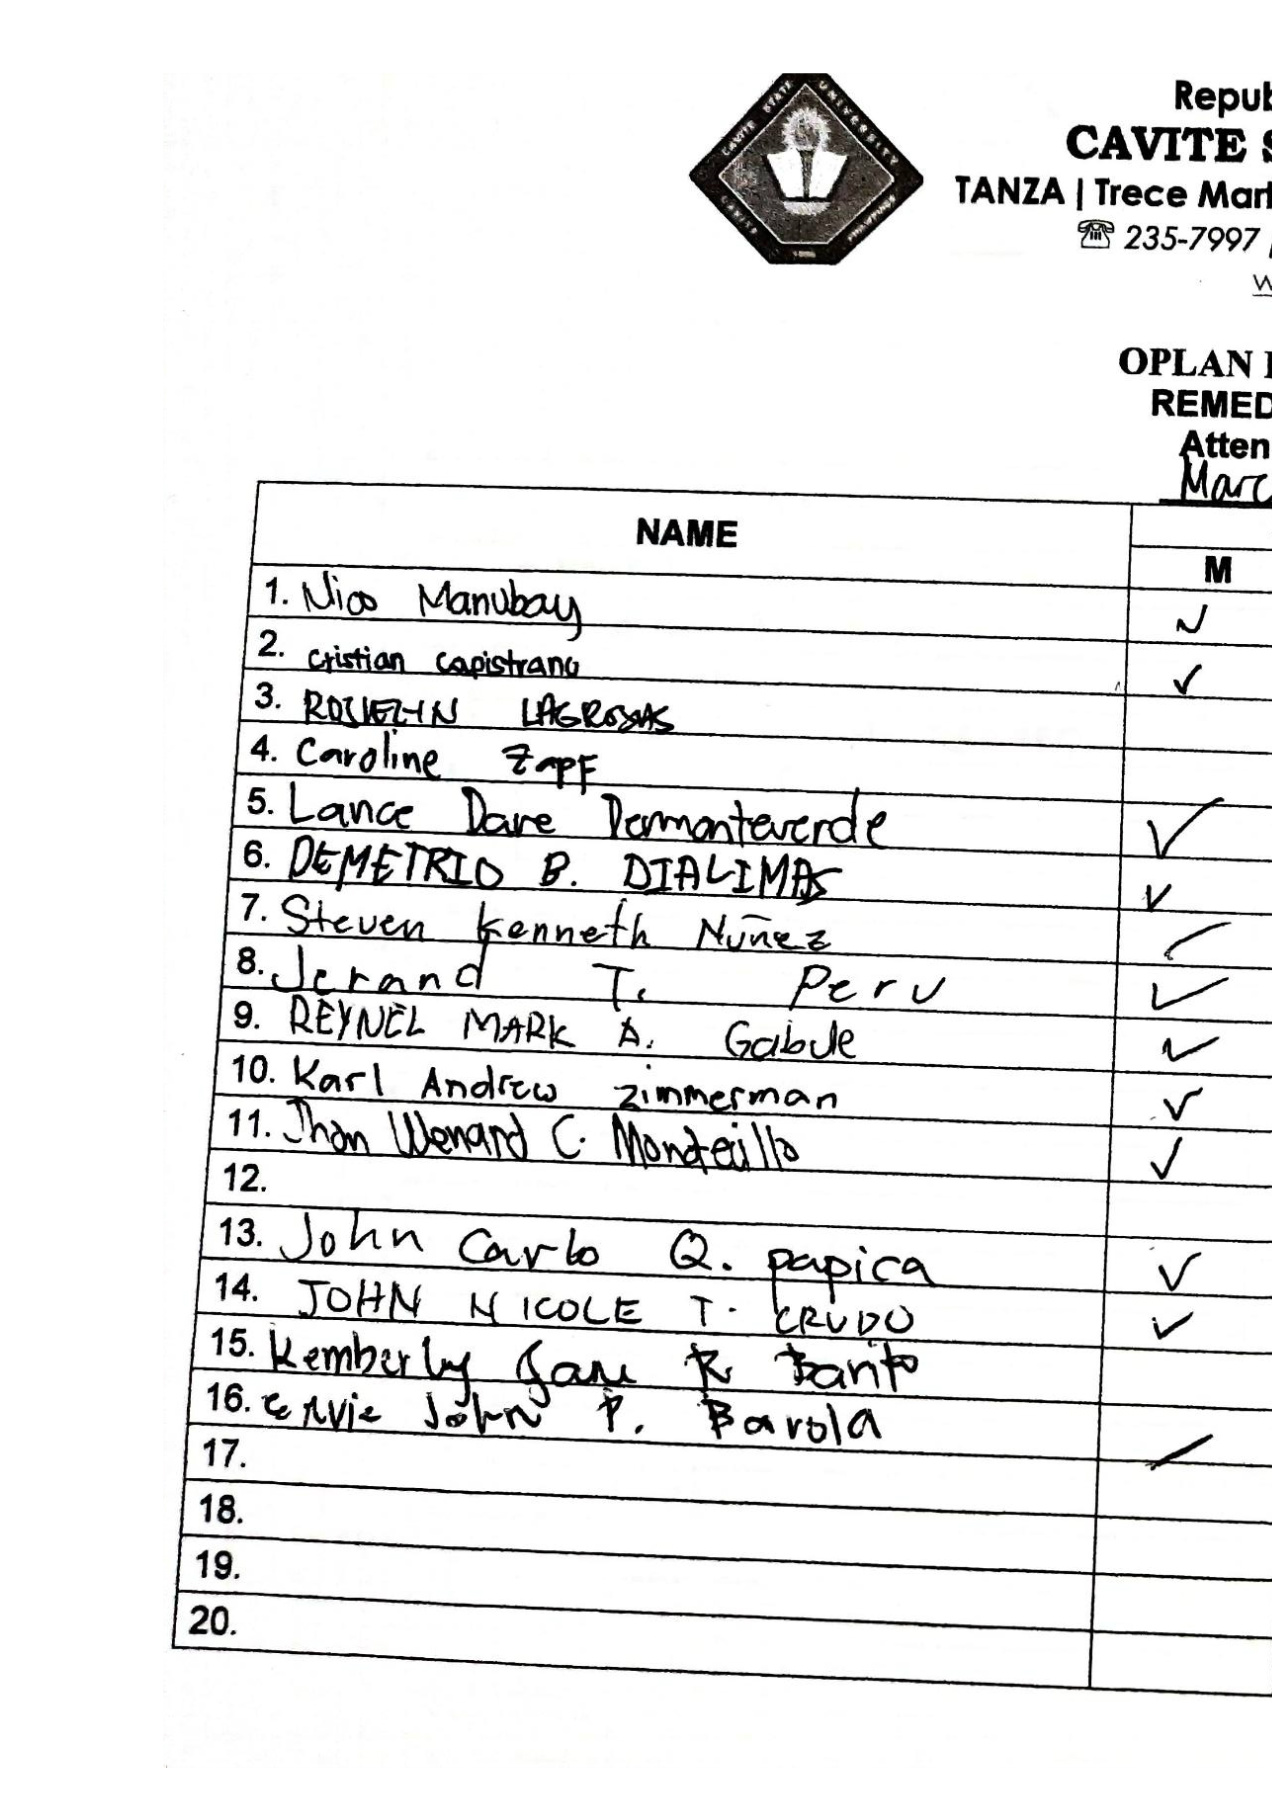 CAVITE STATE UNIVERSITY
CAVITE
PHILIPPINES
Repub
CAVITE S
TANZA | Trece Mart
☏ 235-7997 |
w
OPLAN
REMED
Atten
Marc
NAME
M
1. Nico Manubay ✓
2. cristian capistrano ✓
3.
4. Caroline Zapf
5. Lance Dave Demonteverde ✓
6. DEMETRIO B. DIALIMAS ✓
7. Steven Kenneth Nuñez
8. Jerand T. Peru ✓
9. REYNEL MARK A. Gabule ✓
10. Karl Andrew zimmerman ✓
11. Jhon Wenard C. ✓
12.
13. John Carlo Q. papica ✓
14. JOHN NICOLE T. CRUDO ✓
15. Kemberly Jane R.
16. ervie John P. Barola
17.
18.
19.
20.